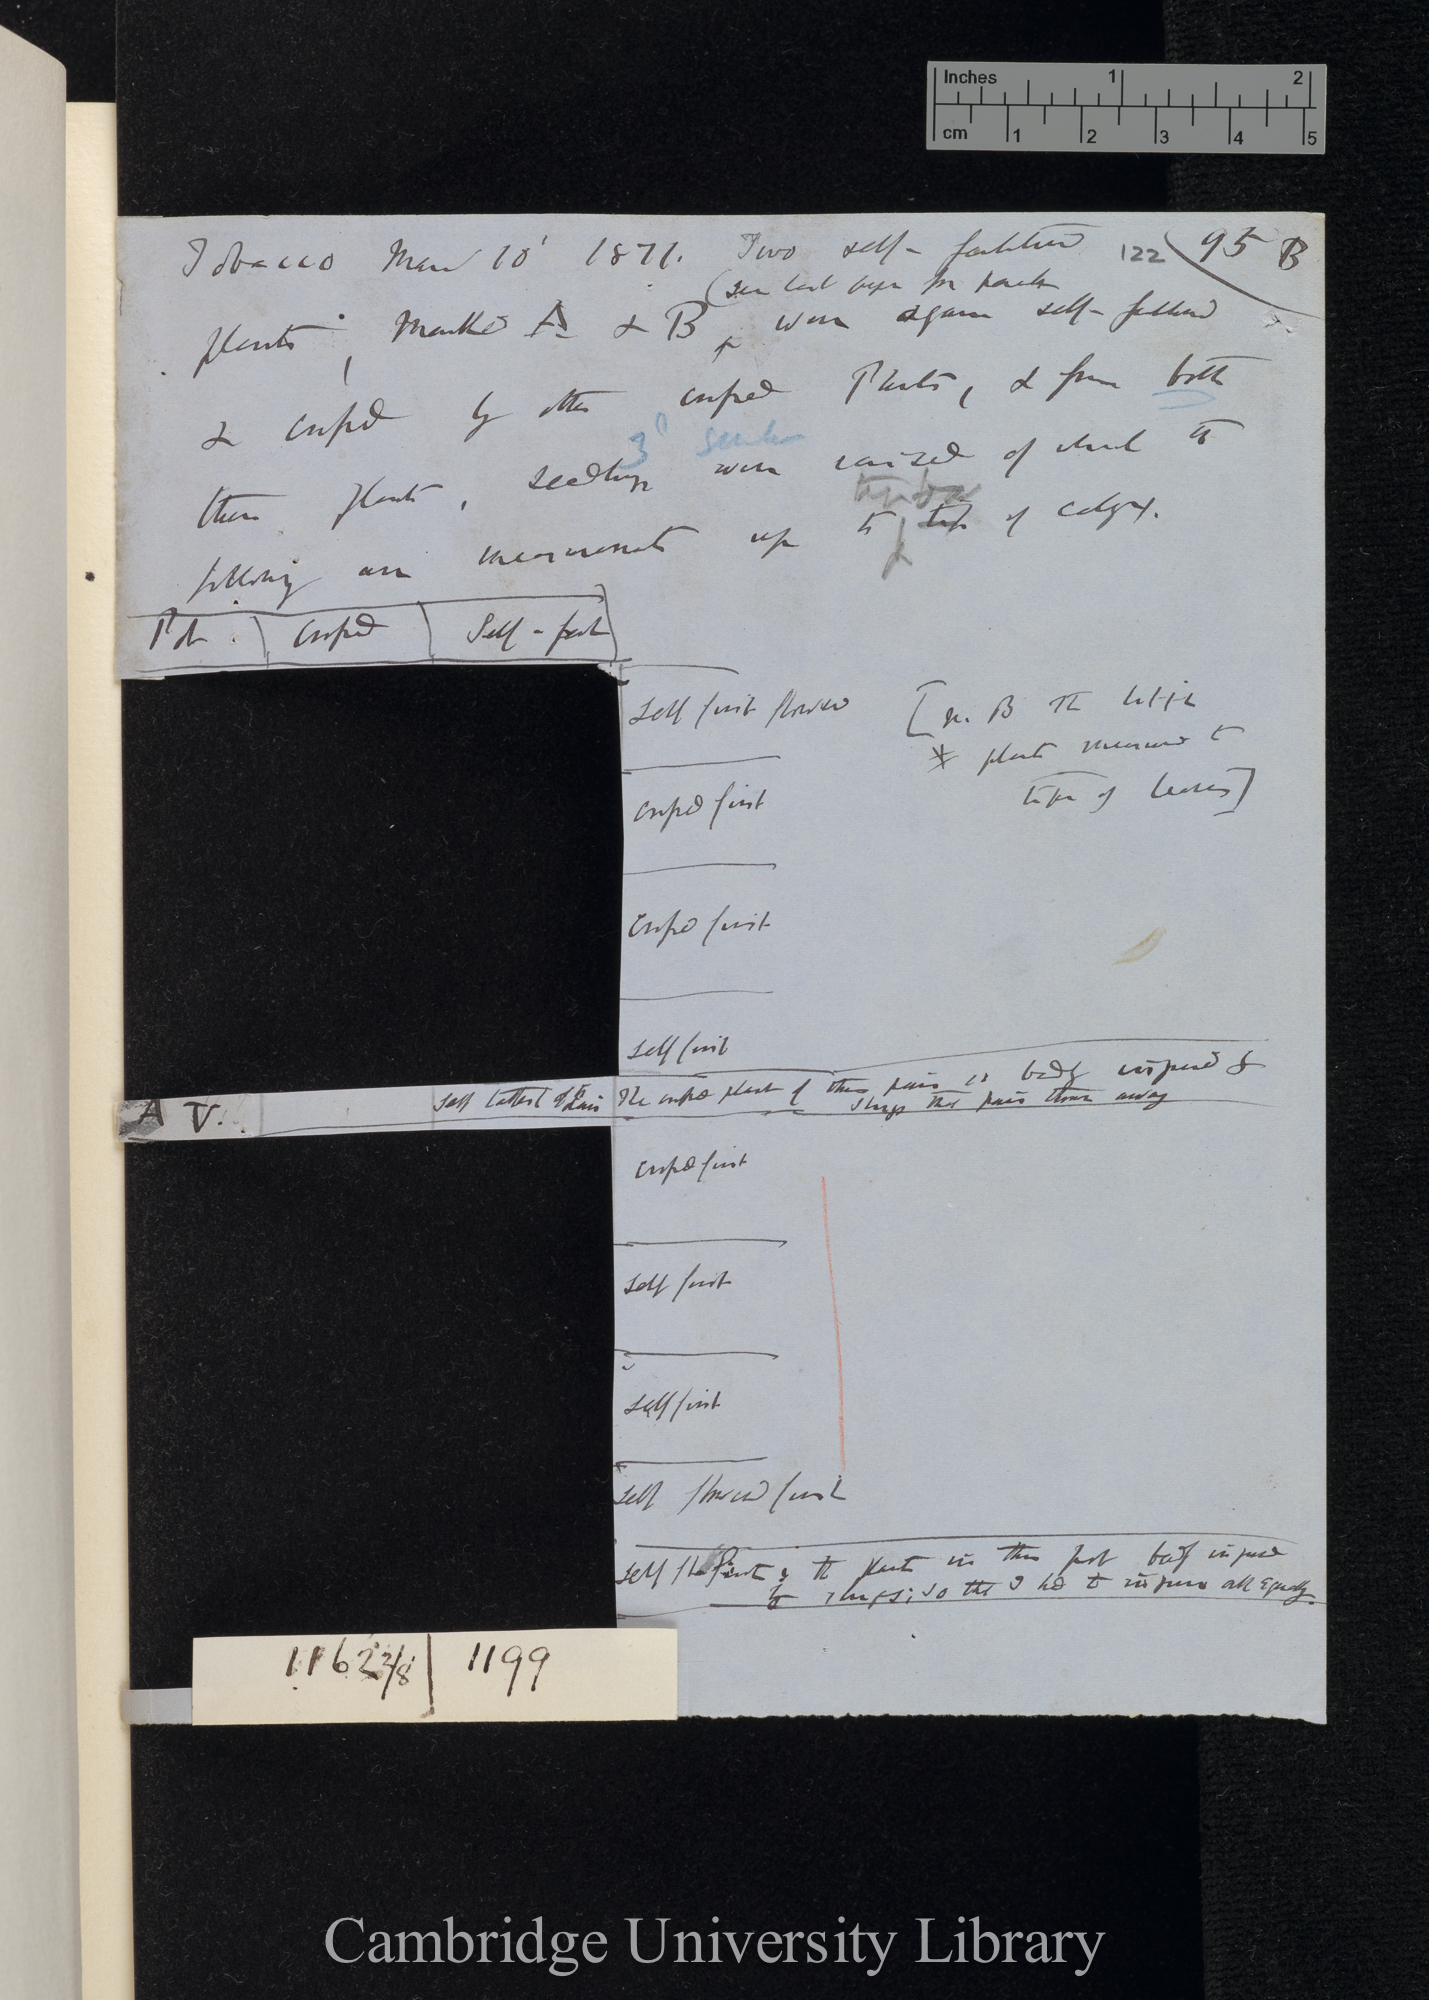 Inches 1 2
cm 1 2 3 4 5
Tobacco 10' 1871. Two self-fertilised 122 95 B
(see last page for parents
plants, marked A & B, were again self-fertilised
& crossed by other crossed Plants, & from both
3d
these plants, seedlings were raised of which the
following are measurements up to tips of calyx.
Pot Crossed Self-fert
Self first flowered [N. B The little
* plants measured to
tips of leaves]
Crossed first
Crossed first
Self first
A V. Self tallest of Pair The crossed plant of this pair is badly injured by
slugs this pair thrown away
Crossed first
Self first
Self first
Self flowered first
Self first, the plants in this pot badly injured
by slugs; so that I had to injure all equally.
1162 2/8 | 1199
Cambridge University Library